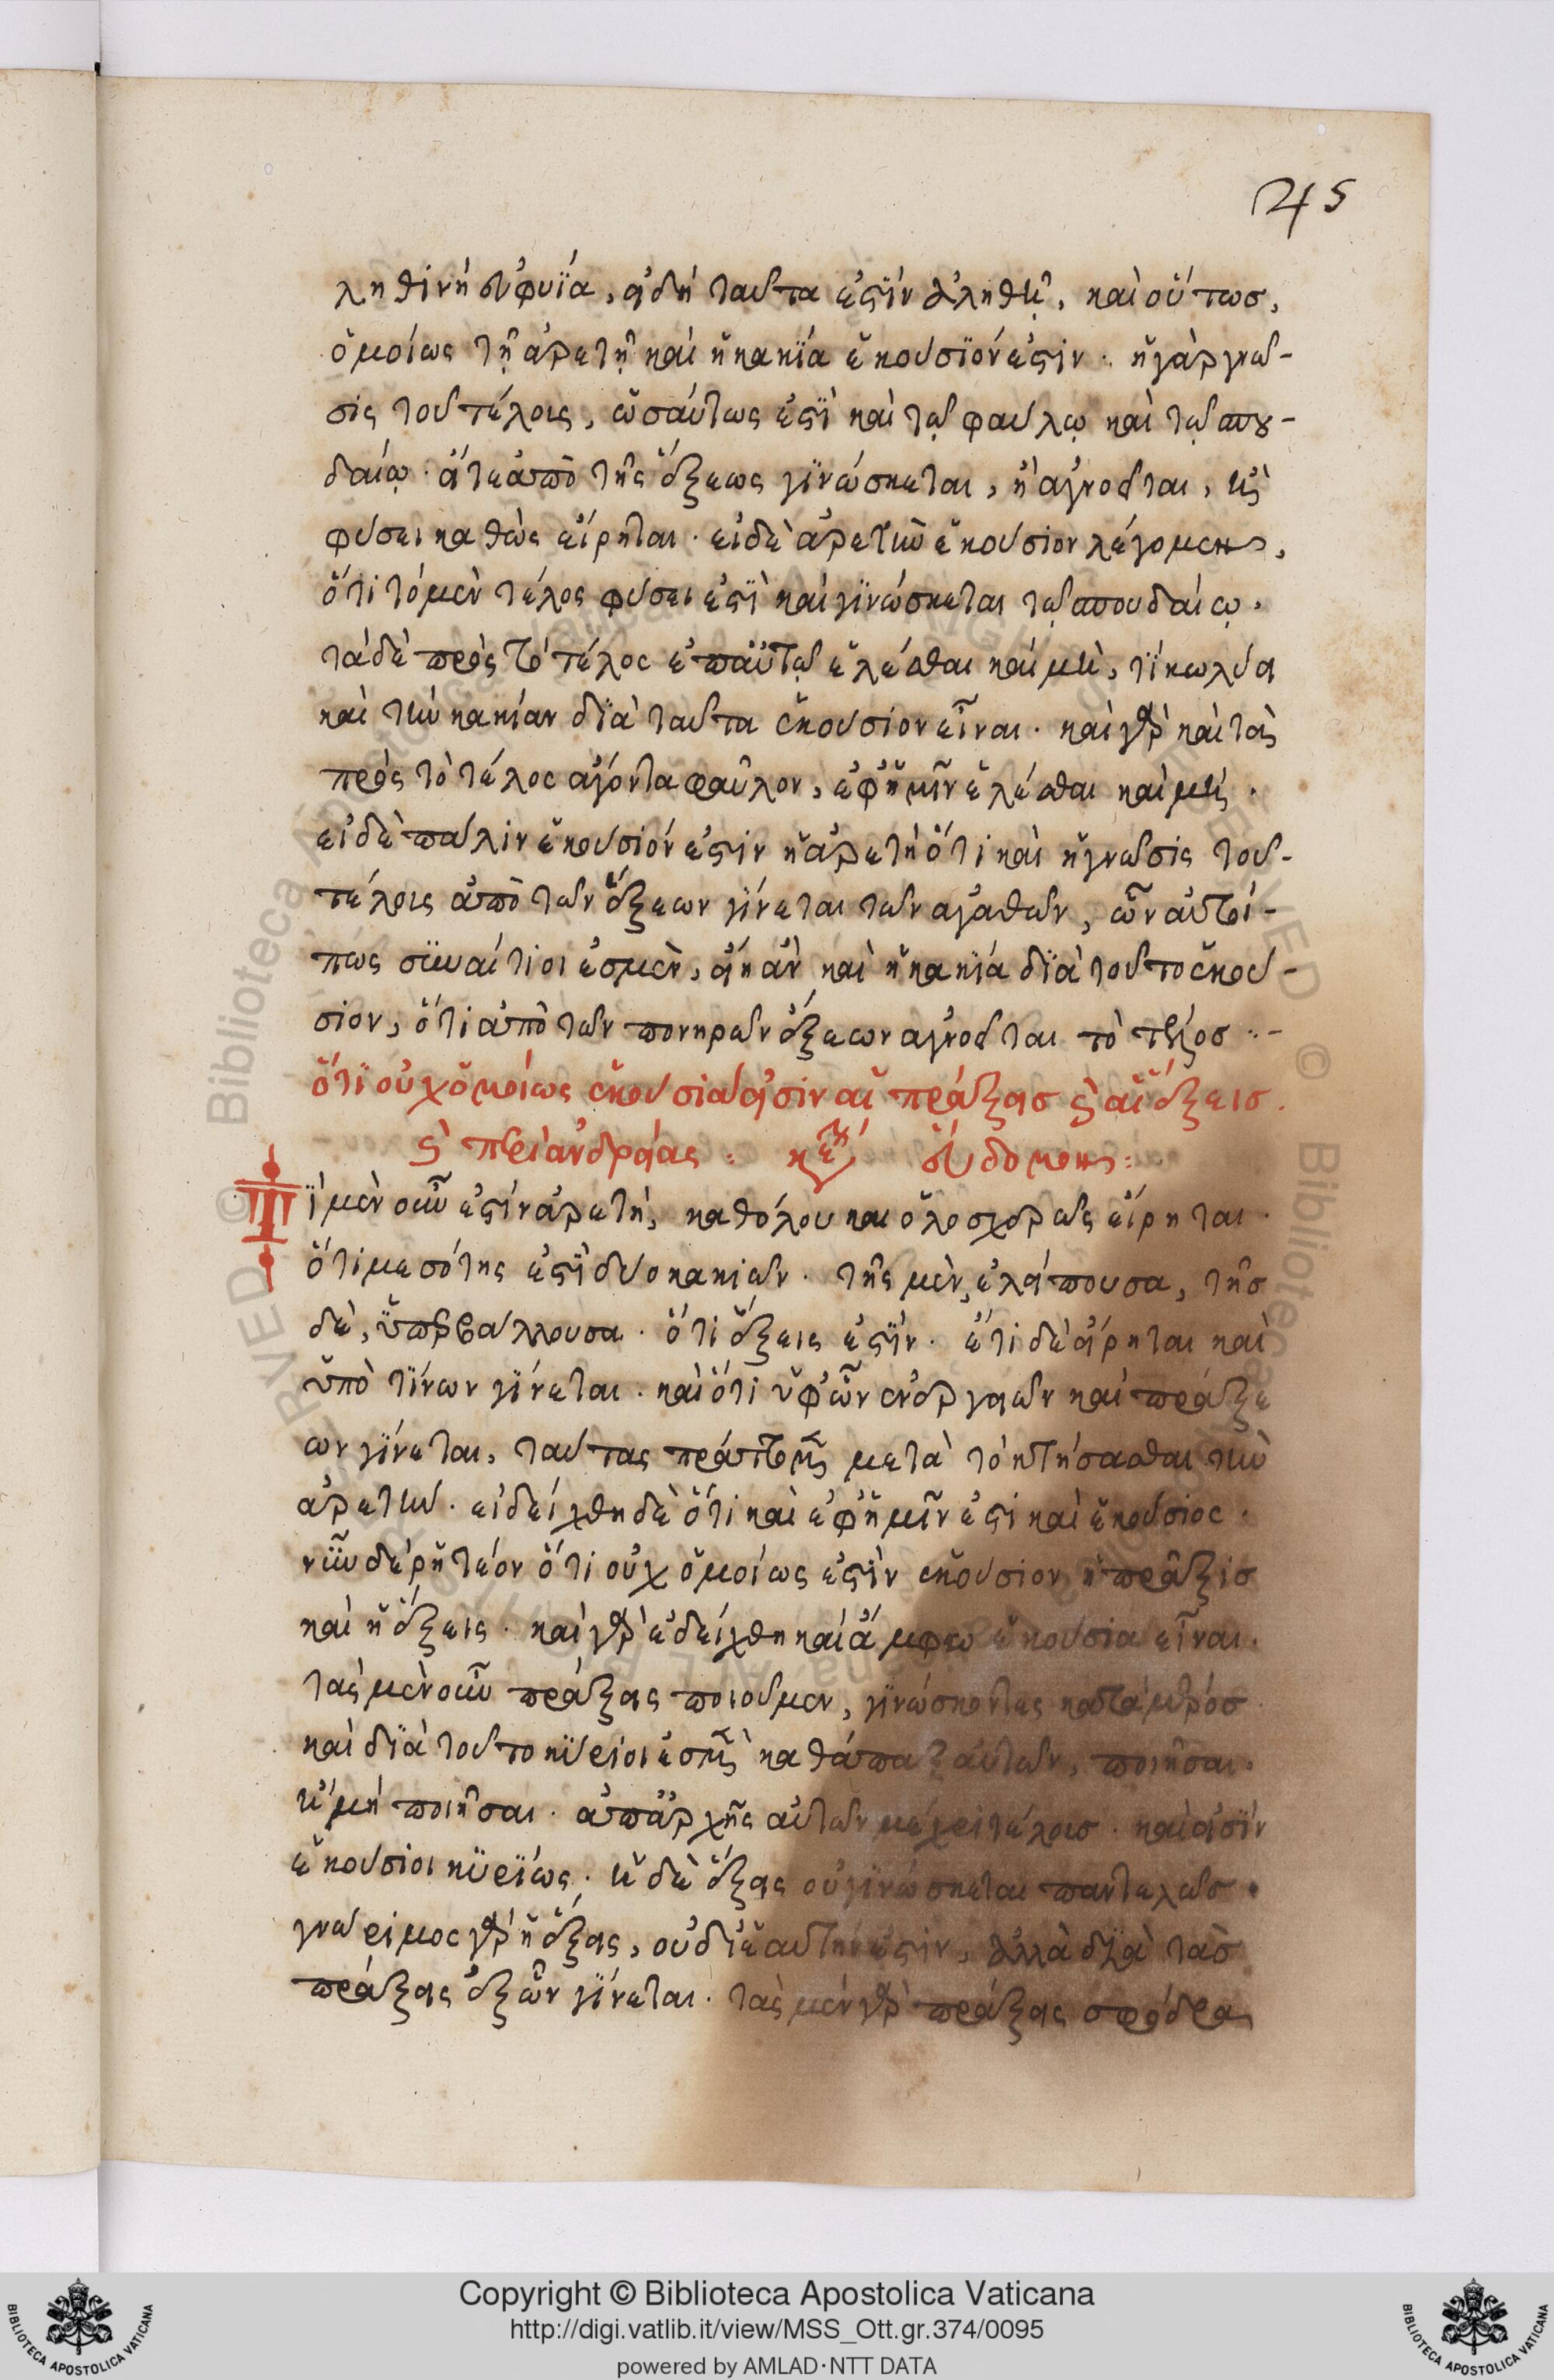 45
ληθινὴ εὐφυΐα, εἰ δὴ ταῦτα ἐστὶν ἀληθῆ, καὶ οὕτως,
ὁμοίως τῇ ἀρετῇ καὶ ἡ κακία ἑκούσιόν ἐστιν· ἡ γὰρ γνῶ-
σις τοῦ τέλους, ὡσαύτως ἐστὶ καὶ τῷ φαύλῳ καὶ τῷ σπου-
δαίῳ· ἅτε ἀπὸ τῆς ἕξεως γινώσκεται, ἢ ἀγνοεῖται, ἢ
φύσει καθὼς εἴρηται· εἰ δὲ ἀρετὴν ἑκούσιον λέγομεν,
ὅτι τὸ μὲν τέλος φύσει ἐστὶ καὶ γινώσκεται τῷ σπουδαίῳ·
τὰ δὲ πρὸς τὸ τέλος ἐπ' αὐτῷ ἑλέσθαι καὶ μὴ, τί κωλύει
καὶ τὴν κακίαν διὰ ταῦτα ἑκούσιον εἶναι· καὶ γὰρ καὶ τὰ
πρὸς τὸ τέλος ἄγοντα φαῦλον, ἐφ' ἡμῖν ἑλέσθαι καὶ μή·
εἰ δὲ πάλιν ἑκούσιόν ἐστιν ἡ ἀρετὴ ὅτι καὶ ἡ γνῶσις τοῦ
τέλους ἀπὸ τῶν ἕξεων γίνεται τῶν ἀγαθῶν, ὧν αὐτοί
πως συναίτιοι ἐσμὲν, εἴη ἂν καὶ ἡ κακία διὰ τοῦτο ἑκού-
σιον, ὅτι ἀπὸ τῶν πονηρῶν ἕξεων ἀγνοεῖται τὸ τέλος :-
ὅτι οὐχ ὁμοίως ἑκούσια εἰσιν αἱ πράξεις καὶ αἱ ἕξεις.
καὶ περὶ ἀνδρείας : κεφ
Τί μὲν οὖν ἐστὶν ἀρετή, καθόλου καὶ ὁλοσχερῶς εἴρηται·
ὅτι μεσότης ἐστὶ δύο κακιῶν· τῆς μὲν, ἐλλείπουσα, τῆς
δὲ, ὑπερβάλλουσα· ὅτι ἕξεις ἐστὶν· ἔτι δὲ εἴρηται καὶ
ὑπὸ τίνων γίνεται· καὶ ὅτι ὑφ' ὧν ἐνεργειῶν καὶ πράξε
ων γίνεται, ταύτας πράττομεν μετὰ τὸ κτήσασθαι τὴν
ἀρετήν· ἐδείχθη δὲ ὅτι καὶ ἐφ' ἡμῖν ἐστὶ καὶ ἑκούσιος·
νῦν δὲ ῥητέον ὅτι οὐχ ὁμοίως ἐστὶν ἑκούσιον ἡ πρᾶξις
καὶ ἡ ἕξεις· καὶ γὰρ ἐδείχθη καὶ ἄμφω ἑκούσια εἶναι.
τὰς μὲν οὖν πράξεις ποιοῦμεν, γινώσκοντες κατὰ μέρος
καὶ διὰ τοῦτο κύριοι ἐσμὲν καθάπαξ αὐτῶν, ποιῆσαι.
ἢ μὴ ποιῆσαι· ἀπ' ἀρχῆς αὐτῶν μέχρι τέλους· καὶ εἰσὶν
ἑκούσιοι κυρίως· ἡ δὲ ἕξις οὐ γινώσκεται παντελῶς·
γνώριμος γὰρ ἡ ἕξις, οὐ δι' ἑαυτήν ἐστιν, ἀλλὰ διὰ τὰς
πράξεις ἐξ ὧν γίνεται· τὰς μὲν γὰρ πράξεις σφόδρα
Copyright © Biblioteca Apostolica Vaticana
http://digi.vatlib.it/view/MSS_Ott.gr.374/0095
powered by AMLAD·NTT DATA